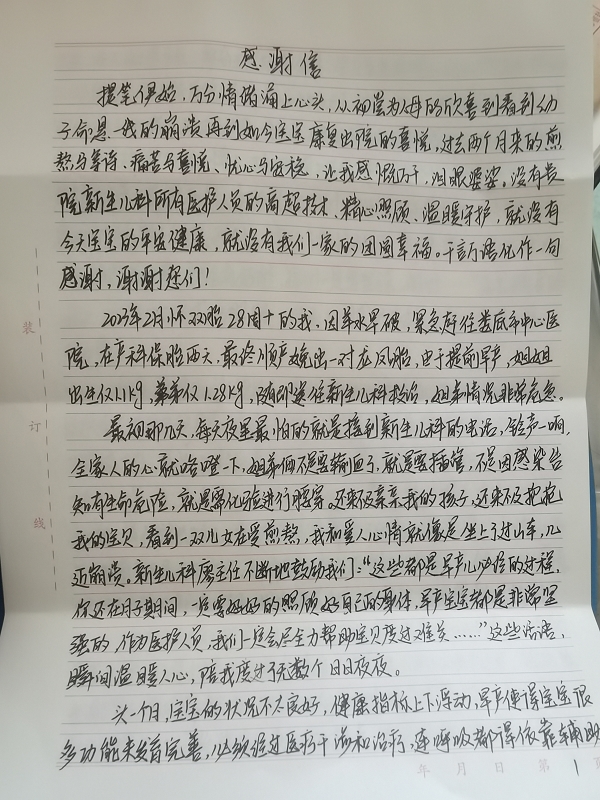 感谢信
提笔俱始，万分情绪涌上心头，从初尝为人母的欣喜到看到幼
子命悬一线的崩溃再到如今宝宝康复出院的喜悦，过去两个月来的煎
熬与等待、痛苦与喜悦、忧心与安稳，让我感慨万千，泪眼婆娑。没有贵
院新生儿科所有医护人员的高超技术、精心照顾、温暖守护，就没有
今天宝宝的平安健康，就没有我们一家的团圆幸福。千言万语化作一句
感谢，谢谢您们！
2023年2月怀双胎28周+的我，因羊水早破，紧急赶往娄底市中心医
院，在产科保胎两天，最终顺产娩出一对龙凤胎，由于提前早产，姐姐
出生仅1.1kg，弟弟仅1.28kg，随即送往新生儿科救治，姐弟情况非常危急。
最初那几天，每天夜里最怕的就是接到新生儿科的电话，铃声一响，
全家人的心就咯噔一下，姐弟俩不是要输血了，就是要插管，不是因感染告
知有生命危险，就是需化验进行腰穿。还来不及亲亲我的孩子，还来不及抱抱
我的宝贝，看到一双儿女在受煎熬，我和爱人心情就像是坐上了过山车，几
近崩溃。新生儿科廖主任不断地鼓励我们：“这些都是早产儿必经的过程，
你还在月子期间，一定要好好的照顾好自己的身体，早产宝宝都是非常坚
强的，作为医护人员，我们一定会尽全力帮助宝贝度过难关……”这些话语，
瞬间温暖人心，陪我度过了无数个日日夜夜。
头一个月，宝宝的状况不太良好，健康指标上下浮动，早产使得宝宝很
多功能未发育完善，必须经过医疗干涉和治疗，连呼吸都得依靠辅助
装
订
线
年 月 日 第 1 页